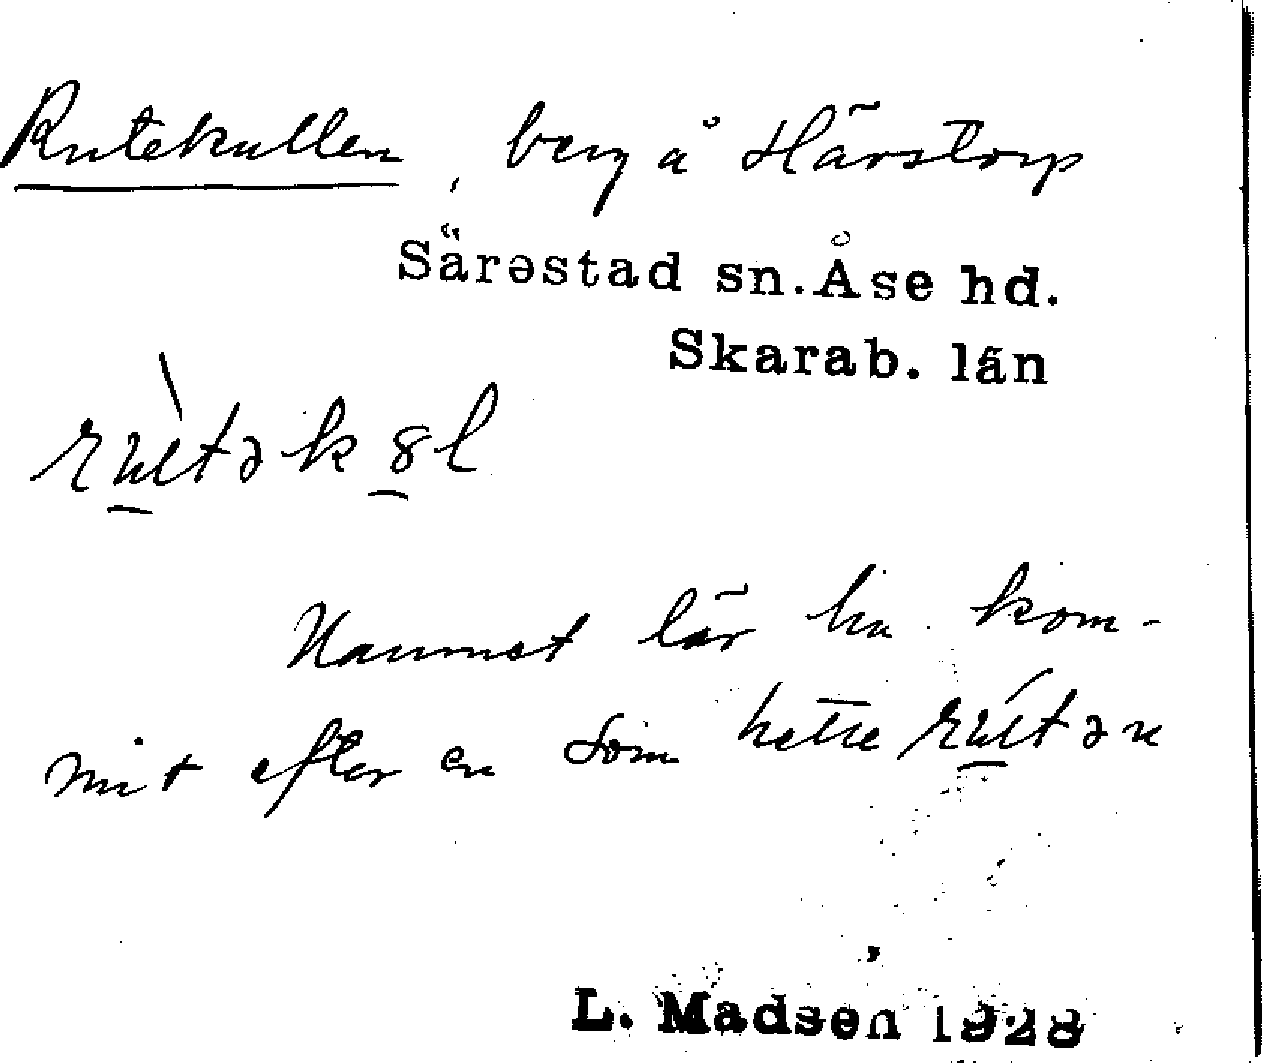 Rutekullen, berg å Härstorp
Särestad sn. Åse hd.
Skarab. län
Namnet lär ha kom-
mit efter en som hette
L. Madsen 1928